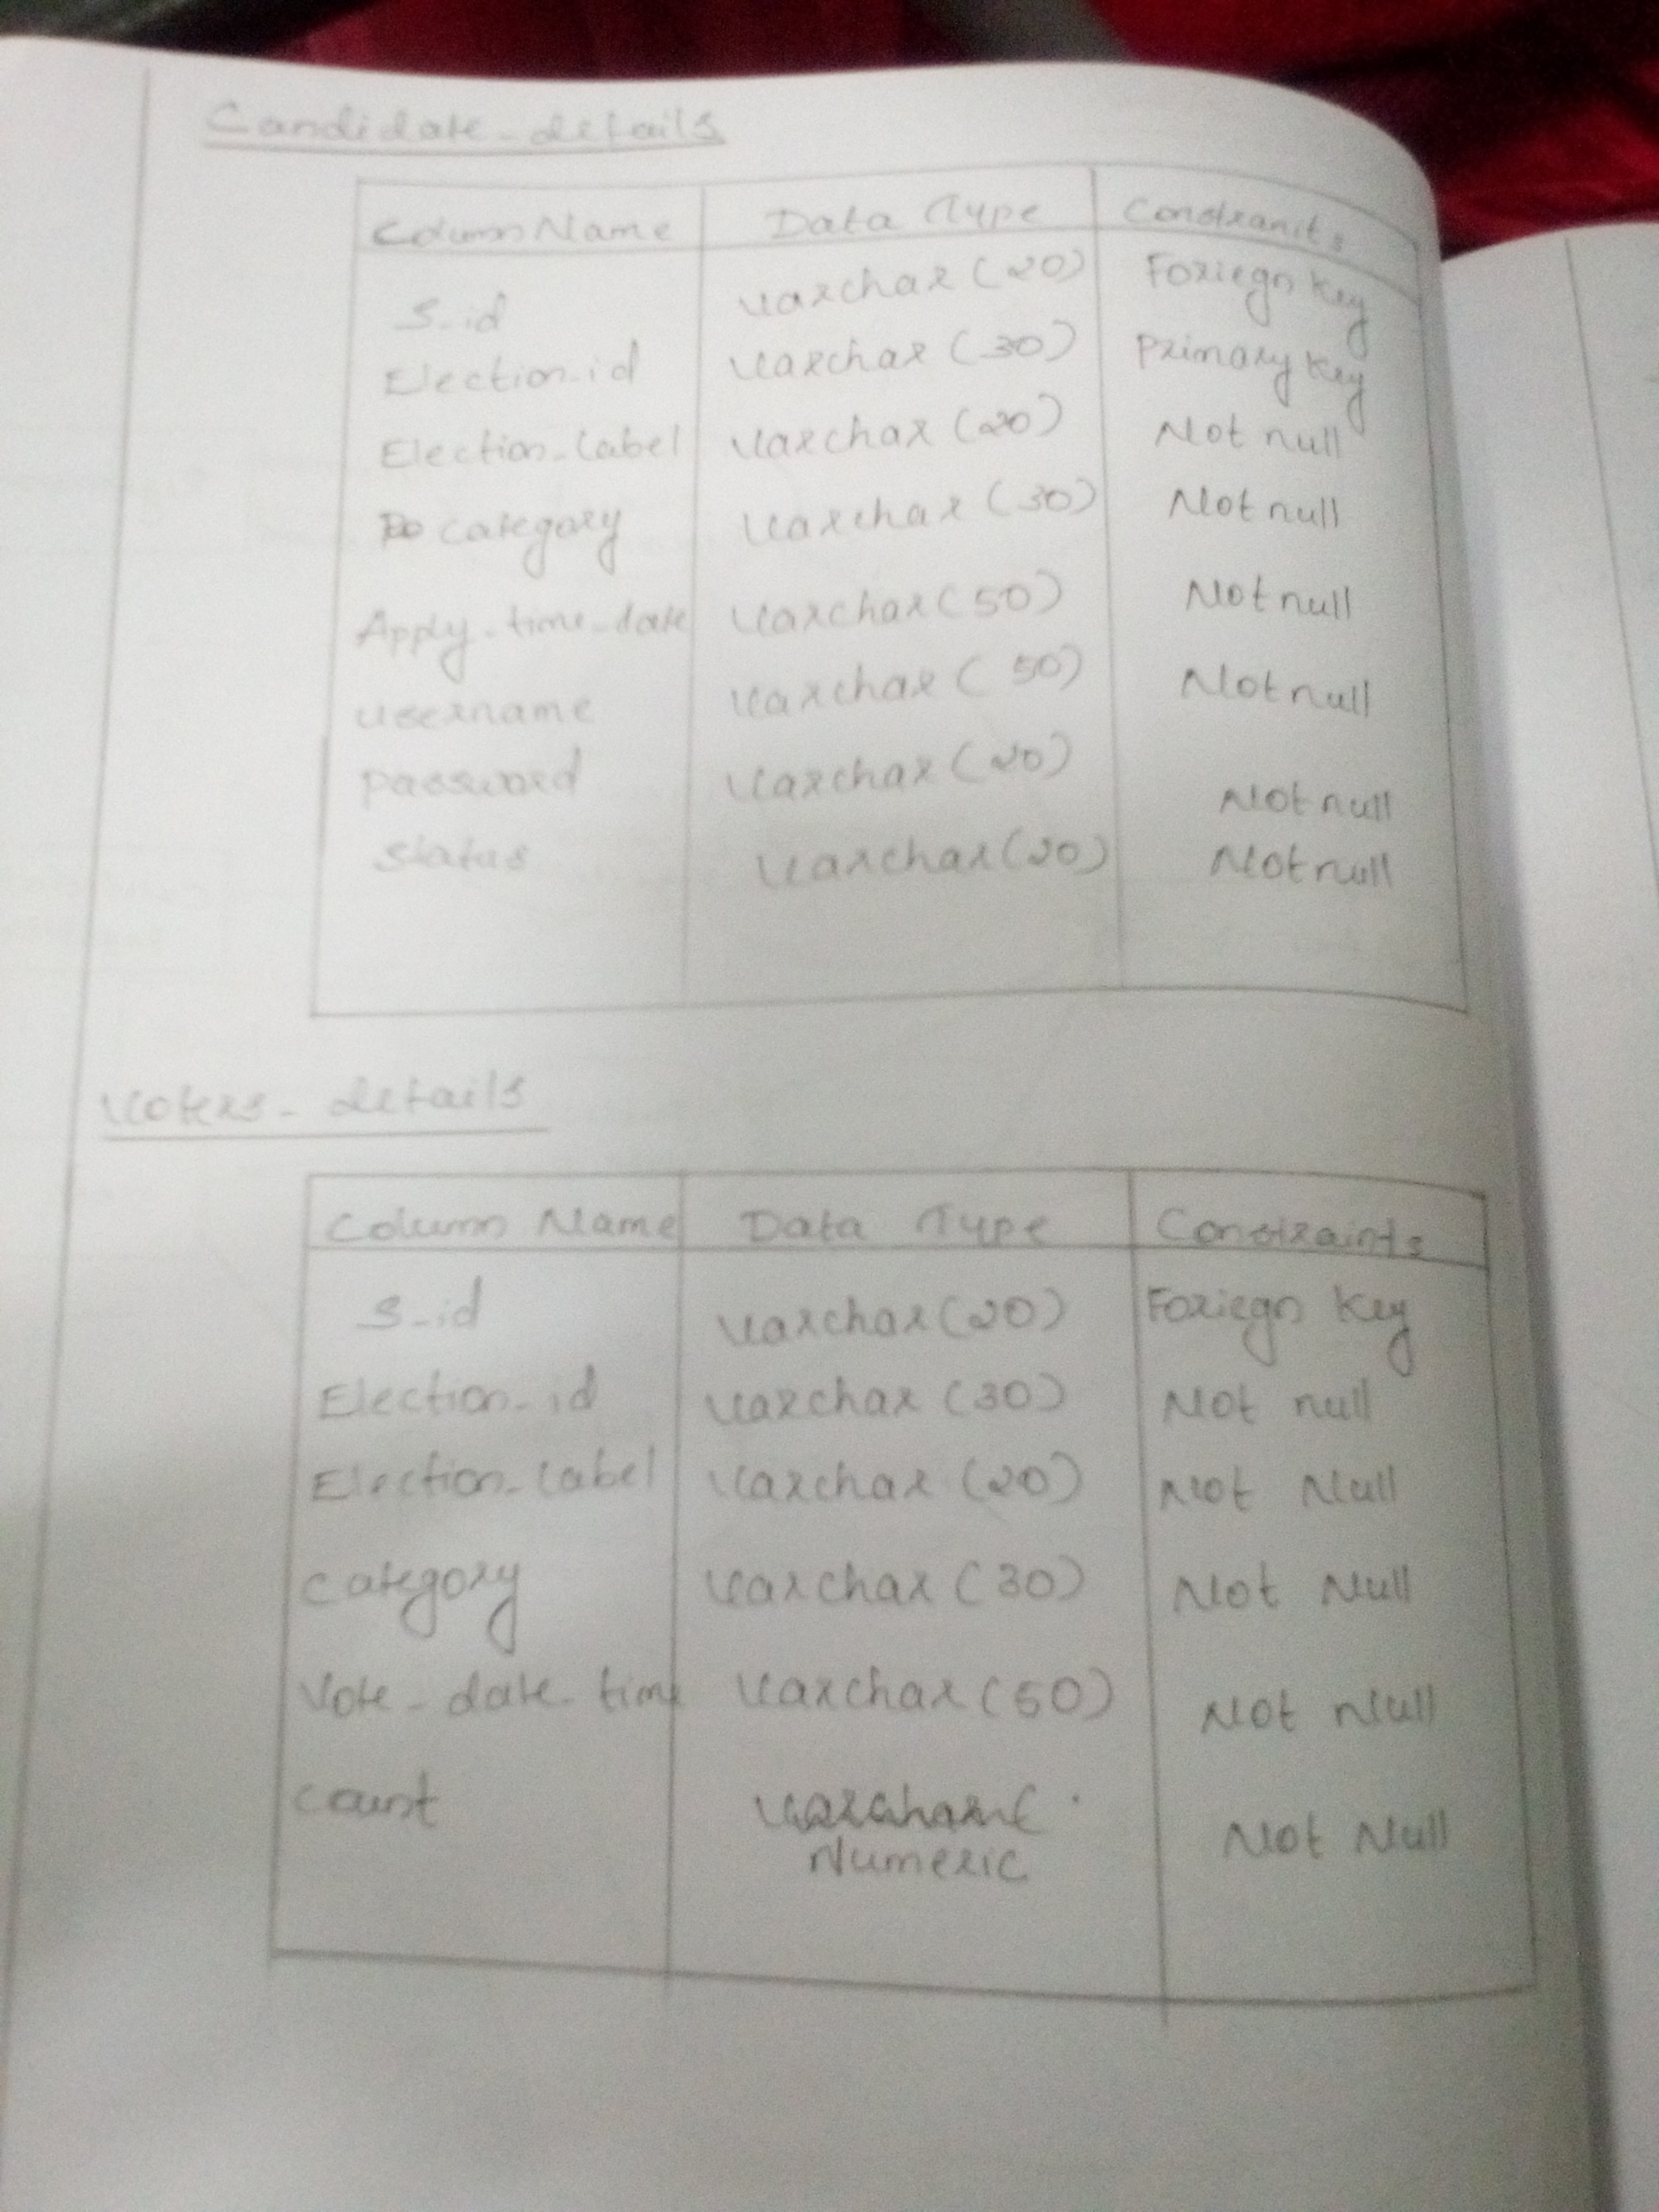 Candidate_details
Column Name Data Type Constranits
S_id Varchar (20) Foriegn Key
Election_id Varchar (30) Primary Key
Election_label Varchar (20) Not null
Category Varchar (30) Not null
Apply_time_date Varchar (50) Not null
username Varchar ( 50) Not null
password Varchar (20) Not null
status Varchar (20) Not null
Voters_details
Column Name Data Type Constraints
S_id Varchar (20) Foriegn Key
Election_id Varchar (30) Not null
Election_label Varchar (20) Not Null
Category Varchar (30) Not Null
Vote_date_time Varchar (50) Not Null
Count Numeric Not Null